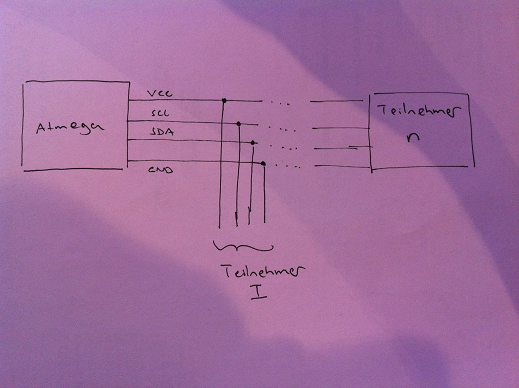 VCC
SCL
SDA
GND
Atmega
Teilnehmer
n
Teilnehmer
I